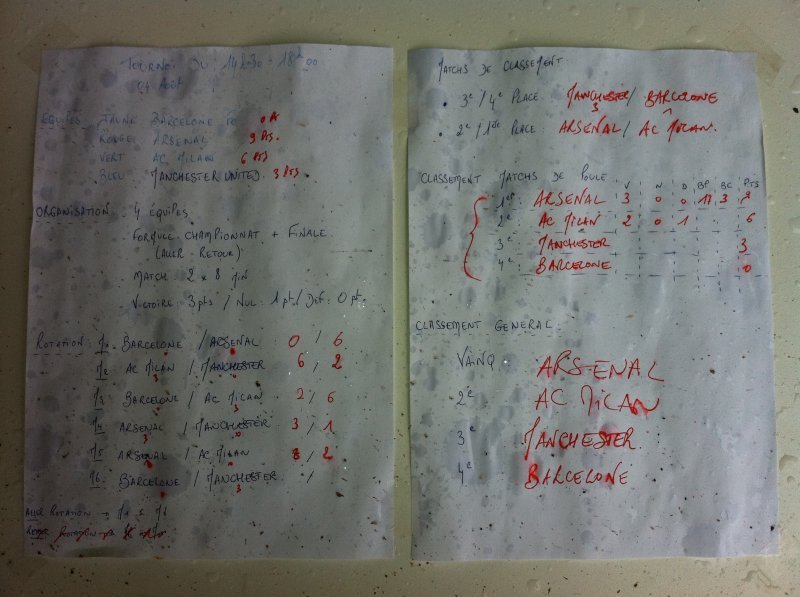 TOURNOI DU 14h30 - 18h00
04 Août
EQUIPES JAUNE BARCELONE FC 0 Pt
ROUGE ARSENAL 9 Pts.
VERT AC MILAN 6 Pts
BLEU MANCHESTER UNITED. 3 Pts
ORGANISATION: 4 EQUIPES
FORMULE CHAMPIONNAT + FINALE
(ALLER-RETOUR)
MATCH 2 x 8 MIN
VICTOIRE: 3 pts / NUL: 1 pt / DEF: 0 pt.
ROTATION: M1 BARCELONE / ARSENAL 0 / 6
3
M2 AC MILAN / MANCHESTER 6 / 2
3
M3 BARCELONE / AC MILAN 2 / 6
3
M4 ARSENAL / MANCHESTER 3 / 1
3 0
M5 ARSENAL / AC MILAN / 2
3
M6 BARCELONE / MANCHESTER /
3
ALLER ROTATION → M1 à M6
RETOUR ROTATION
MATCHS DE CLASSEMENT
• 3e / 4e PLACE: MANCHESTER / BARCELONE
3 1
• 2e / 1ère PLACE: ARSENAL / AC MILAN.
CLASSEMENT MATCHS DE POULE V N D BP BC PTS
1er ARSENAL 3 0 0 17 3 9
2e AC MILAN 2 0 1 6
3e MANCHESTER 3
4e BARCELONE 0
CLASSEMENT GENERAL:
VAINQ ARSENAL
2e AC MILAN
3e MANCHESTER
4e BARCELONE